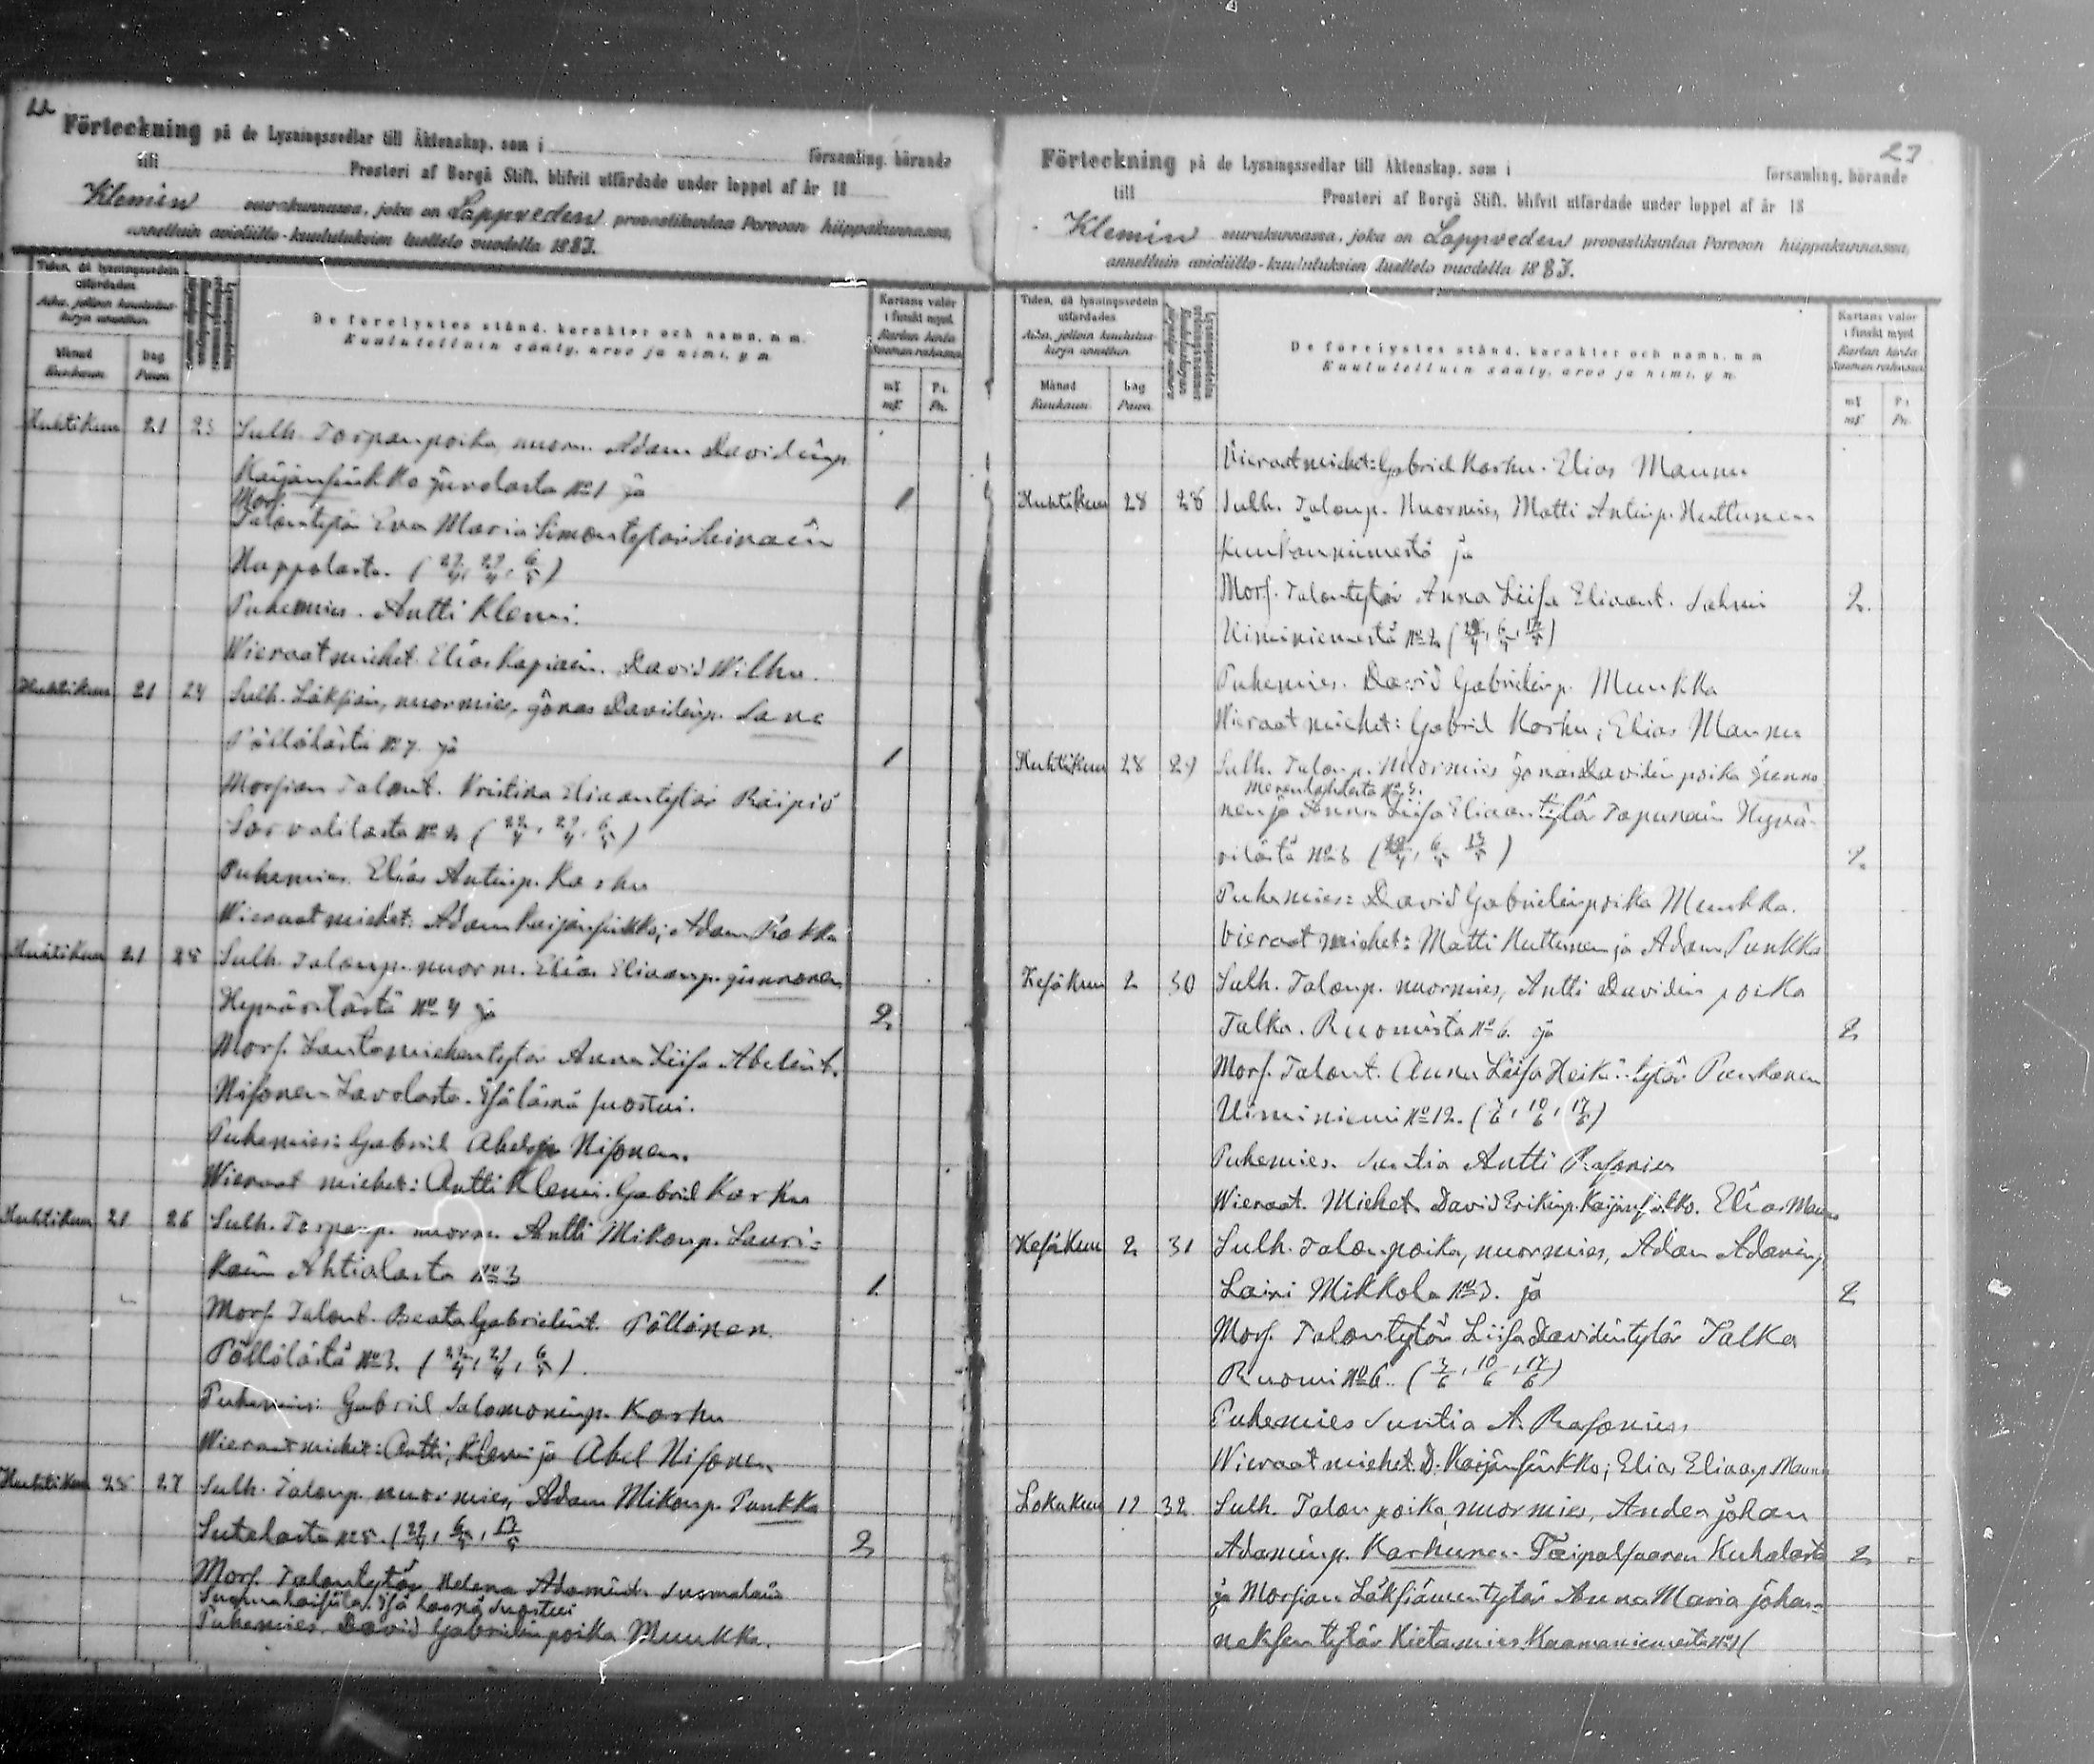 22
Förteckning på de Lysningssedlar till Äktenskap, som i församling, hörande
till Prosteri af Borgå Stift, blifvit utfärdade under loppet af år 18
Klemin seurakunnassa, joka on Lappveden provastikuntaa Porvoon hiippakunnassa,
annettuin avioliitto-kuulutuksien luettelo vuodella 1883.
Tiden, då lysningssedeln utfärdades
Aika, jolloin kuulutus-kirja annettiin
Månad Kuukausi
Dag Päivä
De forelystes stånd, karakter och namn, m. m.
Kuulutettuin sääty, arvo ja nimi, y. m.
Kartans valör i finskt mynt
Kartan hinta Suomen rahassa
mk P:i
mk Pn.
Huhtikuu 21 23 Sulh. Torpanpoika, nuorm. Adam Davidinp.
Kaijansinkko Jurvlasta No 1 ja 1
Morf.
Talontytär Eva Maria Simontytär Leinoin
Huppolasta. (22/4, 29/4, 6/5)
Puhemies. Antti Klemi.
Wieraat miehet. Elias Kapiain. David Wilhu.
Huhtikuu 21 24 Sulh. Läksiäin, nuormies, Jonas Davidinp. Sane
Pöllölästä No 7 ja 1
Morsian Talont. Kristina Eliaantytär Räipiö
Sorvalilasta No 2 (22/4, 29/4, 6/5)
Puhemies. Elias Antinp. Korhu
Wieraat miehet: Adam Kaijansinkko; Adam Rakka
Huhtikuu 21 25 Sulh. Talonp. nuorm. Elias Eliaanp. Junnonen
Hyväristästä No 4 ja 2
Morf. Lautamiehentytär Anna Liisa Abelint.
Nisonen Lavolasta. Isä läsnä suostui.
Puhemies: Gabriel Abelinp Nisonen.
Wieraat miehet: Antti Klemi. Gabriel Korhu
Huhtikuu 21 26 Sulh. Torpanp. nuorm. Antti Mikonp. Lauri-
kain Ahtialasta No 3 1
Morf. Talont. Beata Gabrielint. Pöllönen.
Pöllölästä No 3. (22/4, 29/4, 6/5).
Puhemies: Gabriel Salomoninp. Korhu
Wieraat miehet: Antti Klemi ja Abel Nisonen
Huhtikuu 28 27 Sulh. Talonp. nuormies, Adam Mikonp. Punkka
Sutelasta No 5. (29/4, 6/5, 13/5 2
Morf. Talontytär Helena Adamint. Suomalain
Isä läsnä suostui
Puhemies, David Gabrielinpoika Munkka.
23
Förteckning på de Lysningssedlar till Äktenskap, som i församling, hörande
till Prosteri af Borgå Stift, blifvit utfärdade under loppet af år 18
Klemin seurakunnassa, joka on Lappveden provastikuntaa Porvoon hiippakunnassa,
annettuin avioliitto-kuulutuksien luettelo vuodella 1883.
Tiden, då lysningssedeln utfärdades
Aika, jolloin kuulutus-kirja annettiin
Månad Kuukausi
Dag Päivä
De forelystes stånd, karakter och namn, m. m.
Kuulutettuin sääty, arvo ja nimi, y. m.
Kartans valör i finskt mynt
Kartan hinta Suomen rahassa
mk P:i
mk Pn.
Vieraat miehet: Gabriel Korhu. Elias Maunu
Huhtikuu 28 28 Sulh. Talonp. Nuormies, Matti Antinp. Huttunen
Kuukanniemestä ja
Morf. Talontytär Anna Liisa Eliaant. Salmi 2.
Uiminiemestä No 2 (29/4, 6/5, 13/5)
Puhemies. David Gabrielinp. Munkka
Wieraat miehet: Gabriel Korhu; Elias Maunu
Huhtikuu 28 29 Sulh. Talonp. Nuormies Jonas Davidinpoika Junno-
Merenlahdesta No 3.
nen ja Anna Liisa Eliaantytär Tapanain Hyvä-
rilästä No 3 (29/4, 6/5 13/5) 2.
Puhemies: David Gabrielinpoika Munkka.
Vieraat miehet: Matti Huttunen ja Adam Punkka
Kesäkuu 2 30 Sulh. Talonp. nuormies, Antti Davidin poika
Talka. Ruomista No 6. ja 2
Morf. Talont. Anna Liisa Heikintytär Punkanen
Uiminiemi No 12. (3/6, 10/6, 17/6)
Puhemies. Suntia Antti Rasonius
Wieraat. Miehet David Erikinp. Kaijansinkko. Elias Maunu
Kesäkuu 2 31 Sulh. Talonpoika, nuormies, Adam Adaminp.
Lairi Mikkola No 3. ja 2
Morf. Talontytär Liisa Davidintytär Talka
Ruomi No 6. (3/6, 10/6, 17/6)
Puhemies Suntia A. Rasonius
Wieraat miehet. D. Kaijansinkko; Elias Eliaanp. Maunu
Lokakuu 12 32 Sulh. Talonpoika, nuormies, Anders Johan
Adaminp. Karhunen Taipalsaaren Kuhalasta 2
ja Morsian Läksiämentytär Anna Maria Johan-
neksentytär Kietamies Kaamaniemestä No 1 (